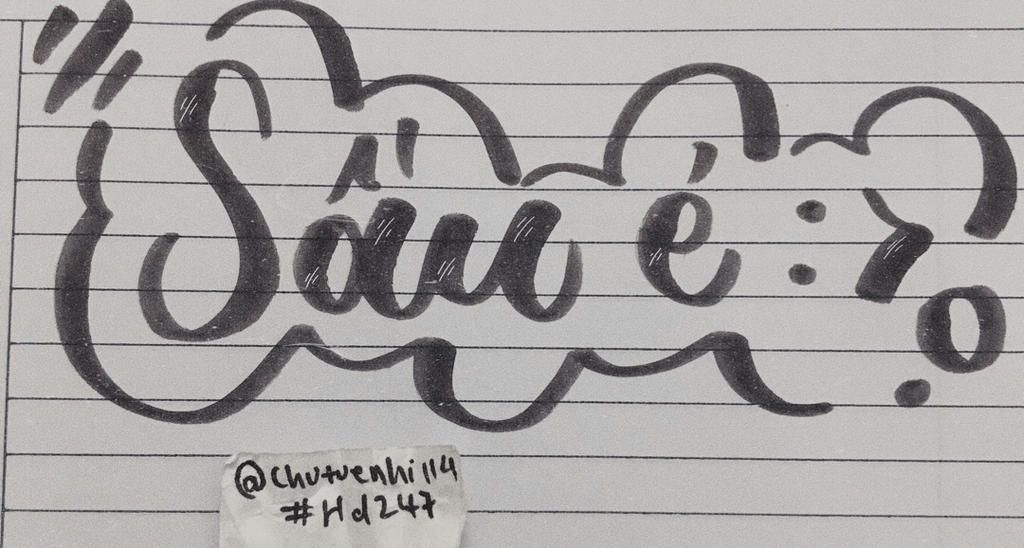 Sấu é :>
@chutuenhi114
#Hd247